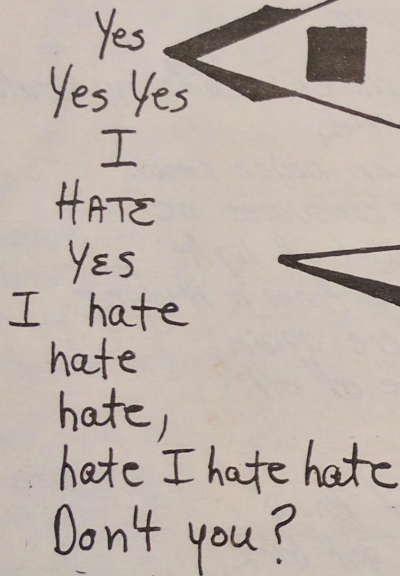 Yes
Yes Yes
I
HATE
YES
I hate
hate
hate,
hate I hate hate
Don't you?